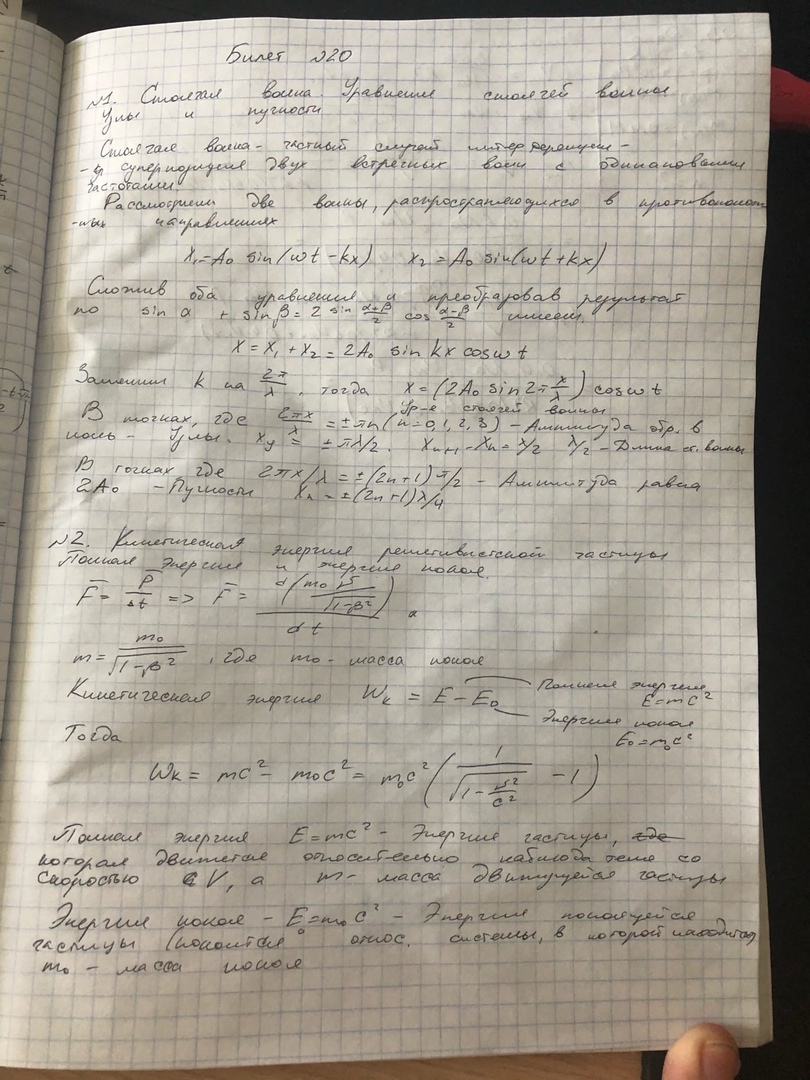 Билет №20
№1. Стоячая волна. Уравнение стоячей волны
Узлы и пучности
Стоячая волна - частный случай интерференции -
- суперпозиция двух встречных волн с одинаковыми
частотами
Рассмотрим две волны, распространяющихся в противополож
-ных направлениях
x₁=A₀ sin(ωt-kx) x₂=A₀ sin(ωt+kx)
Сложив оба уравнения и преобразовав результат
по sin α + sin β = 2 sin (α+β)/2 cos (α-β)/2 имеем:
X = X₁ + X₂ = 2A₀ sin kx cos ωt
Заменим k на 2π/λ, тогда x = (2A₀ sin 2π x/λ) cos ωt
Ур-е стоячей волны
В точках, где 2πx/λ = ±πn (n=0,1,2,3) - Амплитуда обр. в
ноль - Узлы. Xу = ±πλ/2. Xn+1 - Xn = λ/2 λ/2 - Длина ст. волны
В точках где 2πx/λ = ±(2n+1) π/2 - Амплитуда равна
2A₀ - Пучности Xn = ±(2n+1) λ/4
№2. Кинетическая энергия релятивистской частицы
Полная энергия и энергия покоя.
F = P/Δt => F = d(m₀v/√(1-β²))/dt
m = m₀/√(1-β²), где m₀ - масса покоя
Кинетическая энергия Wк = E - E₀
Полная энергия
E=mc²
Энергия покоя
E₀=m₀c²
Тогда
Wк = mc² - m₀c² = m₀c² (1/√(1-v²/c²) - 1)
Полная энергия E=mc² - Энергия частицы,
которая движется относительно наблюдателя со
скоростью V, а m - масса движущейся частицы
Энергия покоя - E₀=m₀c² - Энергия покоящейся
частицы (покоится относ. системы, в которой находится)
m₀ - масса покоя